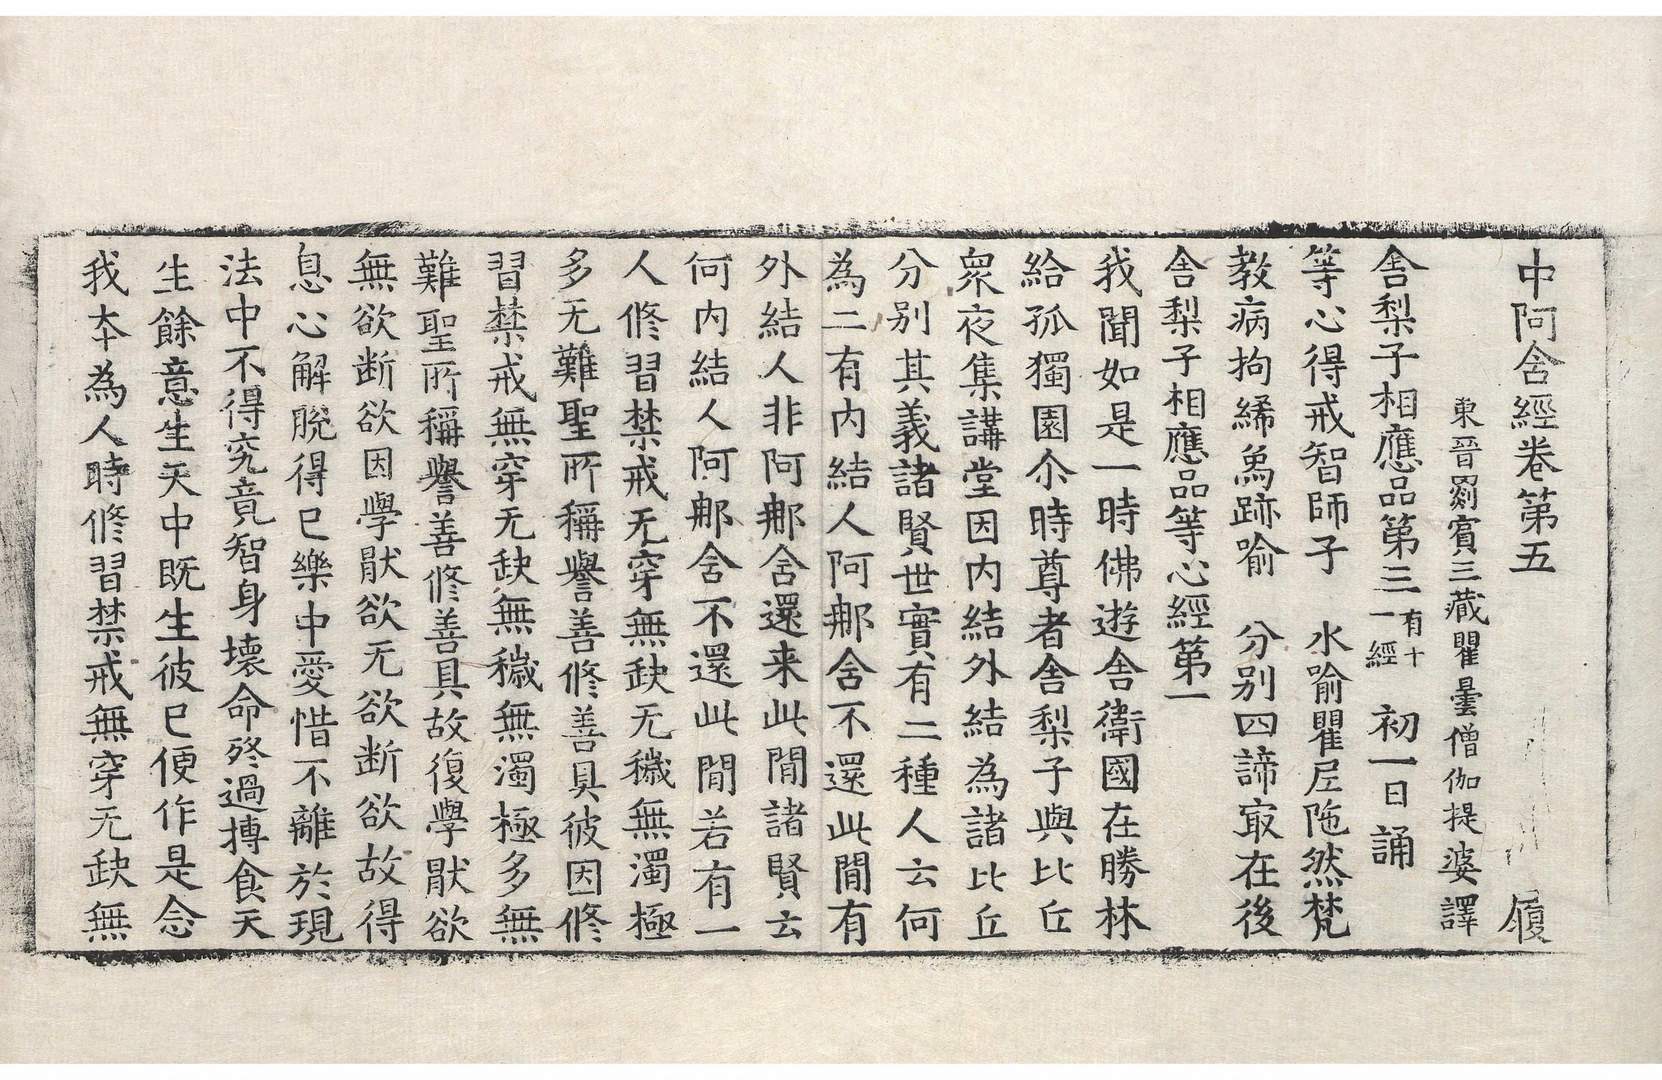 中阿含經卷第五 履
東晉罽賓三藏瞿曇僧伽提婆譯
舍梨子相應品第三有十一經 初一日誦
等心得戒智師子 水喻瞿尼陁然梵
教病拘絺象跡喻 分別四諦㝡在後
舍梨子相應品等心經第一
我聞如是一時佛遊舍衛國在勝林
給孤獨園尒時尊者舍梨子與比丘
衆夜集講堂因內結外結為諸比丘
分別其義諸賢世實有二種人云何
為二有內結人阿那含不還此閒有
外結人非阿那含還来此閒諸賢云
何內結人阿那含不還此閒若有一
人修習禁戒无穿無缺无穢無濁極
多无難聖所稱譽善修善具彼因修
習禁戒無穿无缺無穢無濁極多無
難聖所稱譽善修善具故復學猒欲
無欲斷欲因學猒欲无欲断欲故得
息心解脫得已樂中愛惜不離於現
法中不得究竟智身壞命終過摶食天
生餘意生天中既生彼已便作是念
我本為人時修習禁戒無穿无缺無